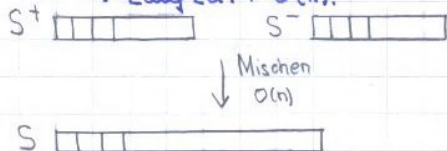 O(n).
S⁺ S⁻
Mischen
O(n)
S